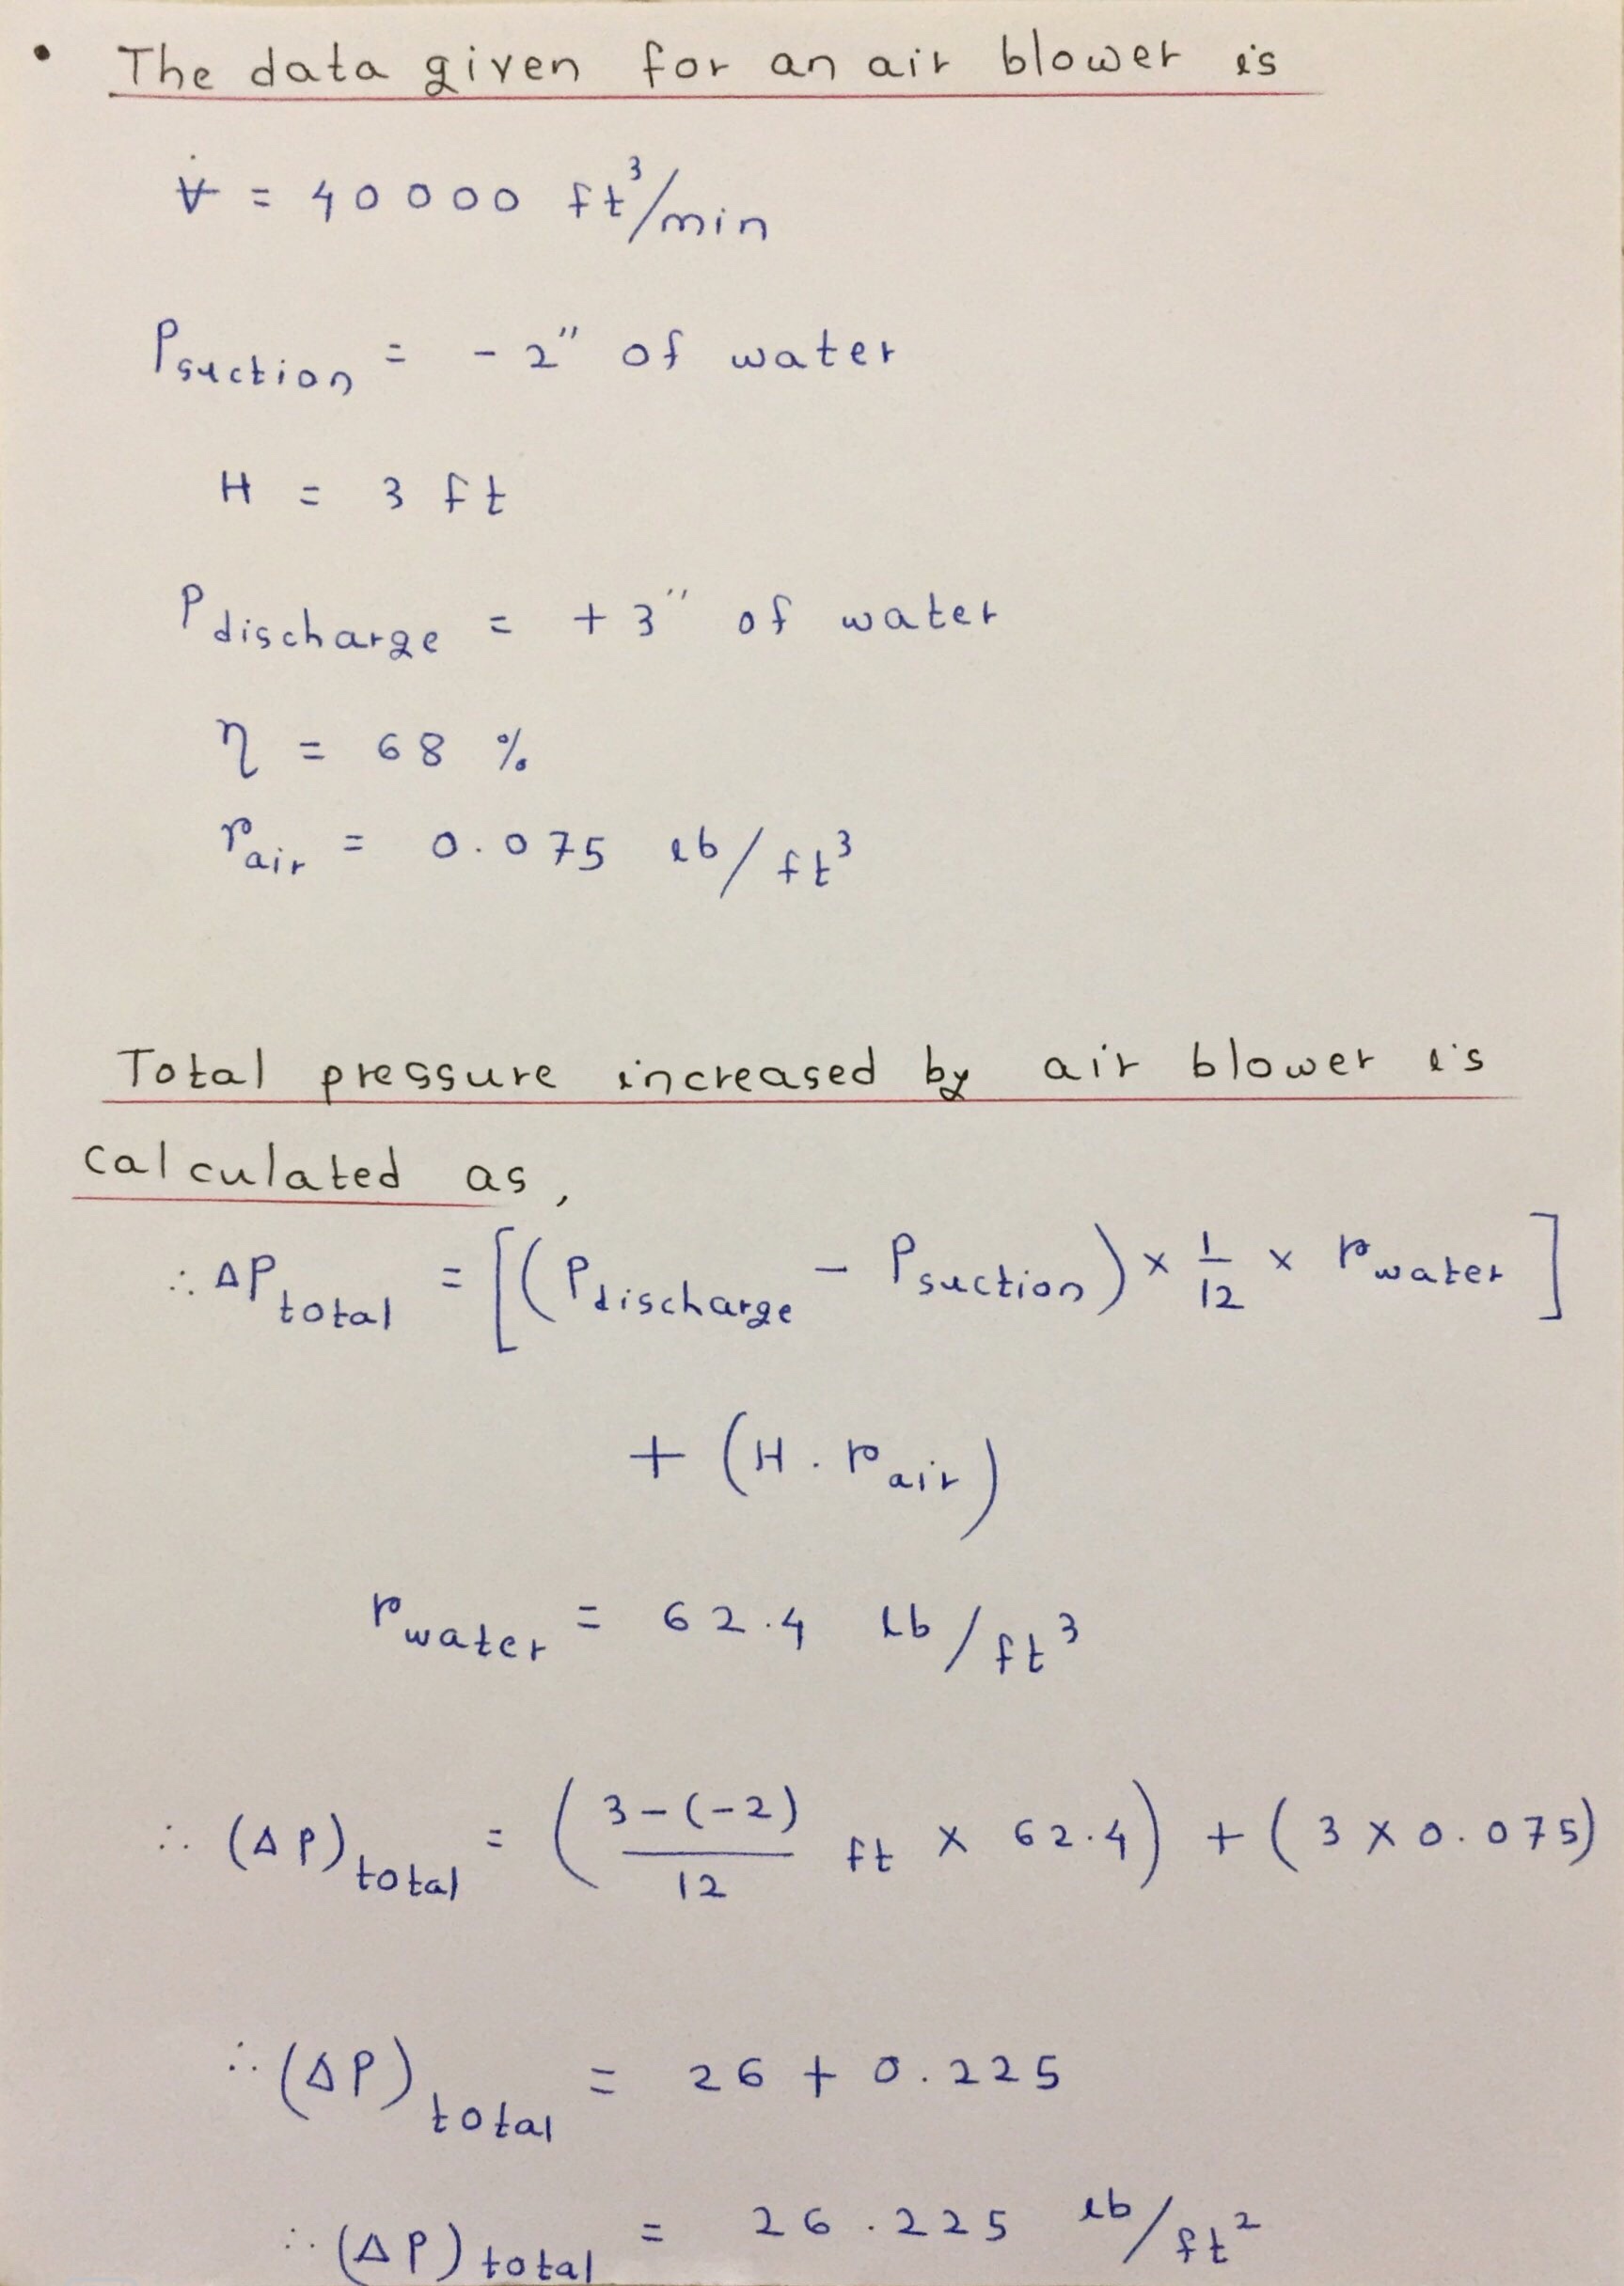 • The data given for an air blower is
V̇ = 40000 ft³/min
Psuction = -2" of water
H = 3 ft
Pdischarge = +3" of water
η = 68 %
rair = 0.075 lb/ft³
Total pressure increased by air blower is
calculated as,
∴ ΔPtotal = [(Pdischarge - Psuction) × 1/12 × rwater]
+ (H . rair)
rwater = 62.4 lb/ft³
∴ (ΔP)total = (3-(-2)/12 ft × 62.4) + (3 × 0.075)
∴ (ΔP)total = 26 + 0.225
∴ (ΔP)total = 26.225 lb/ft²